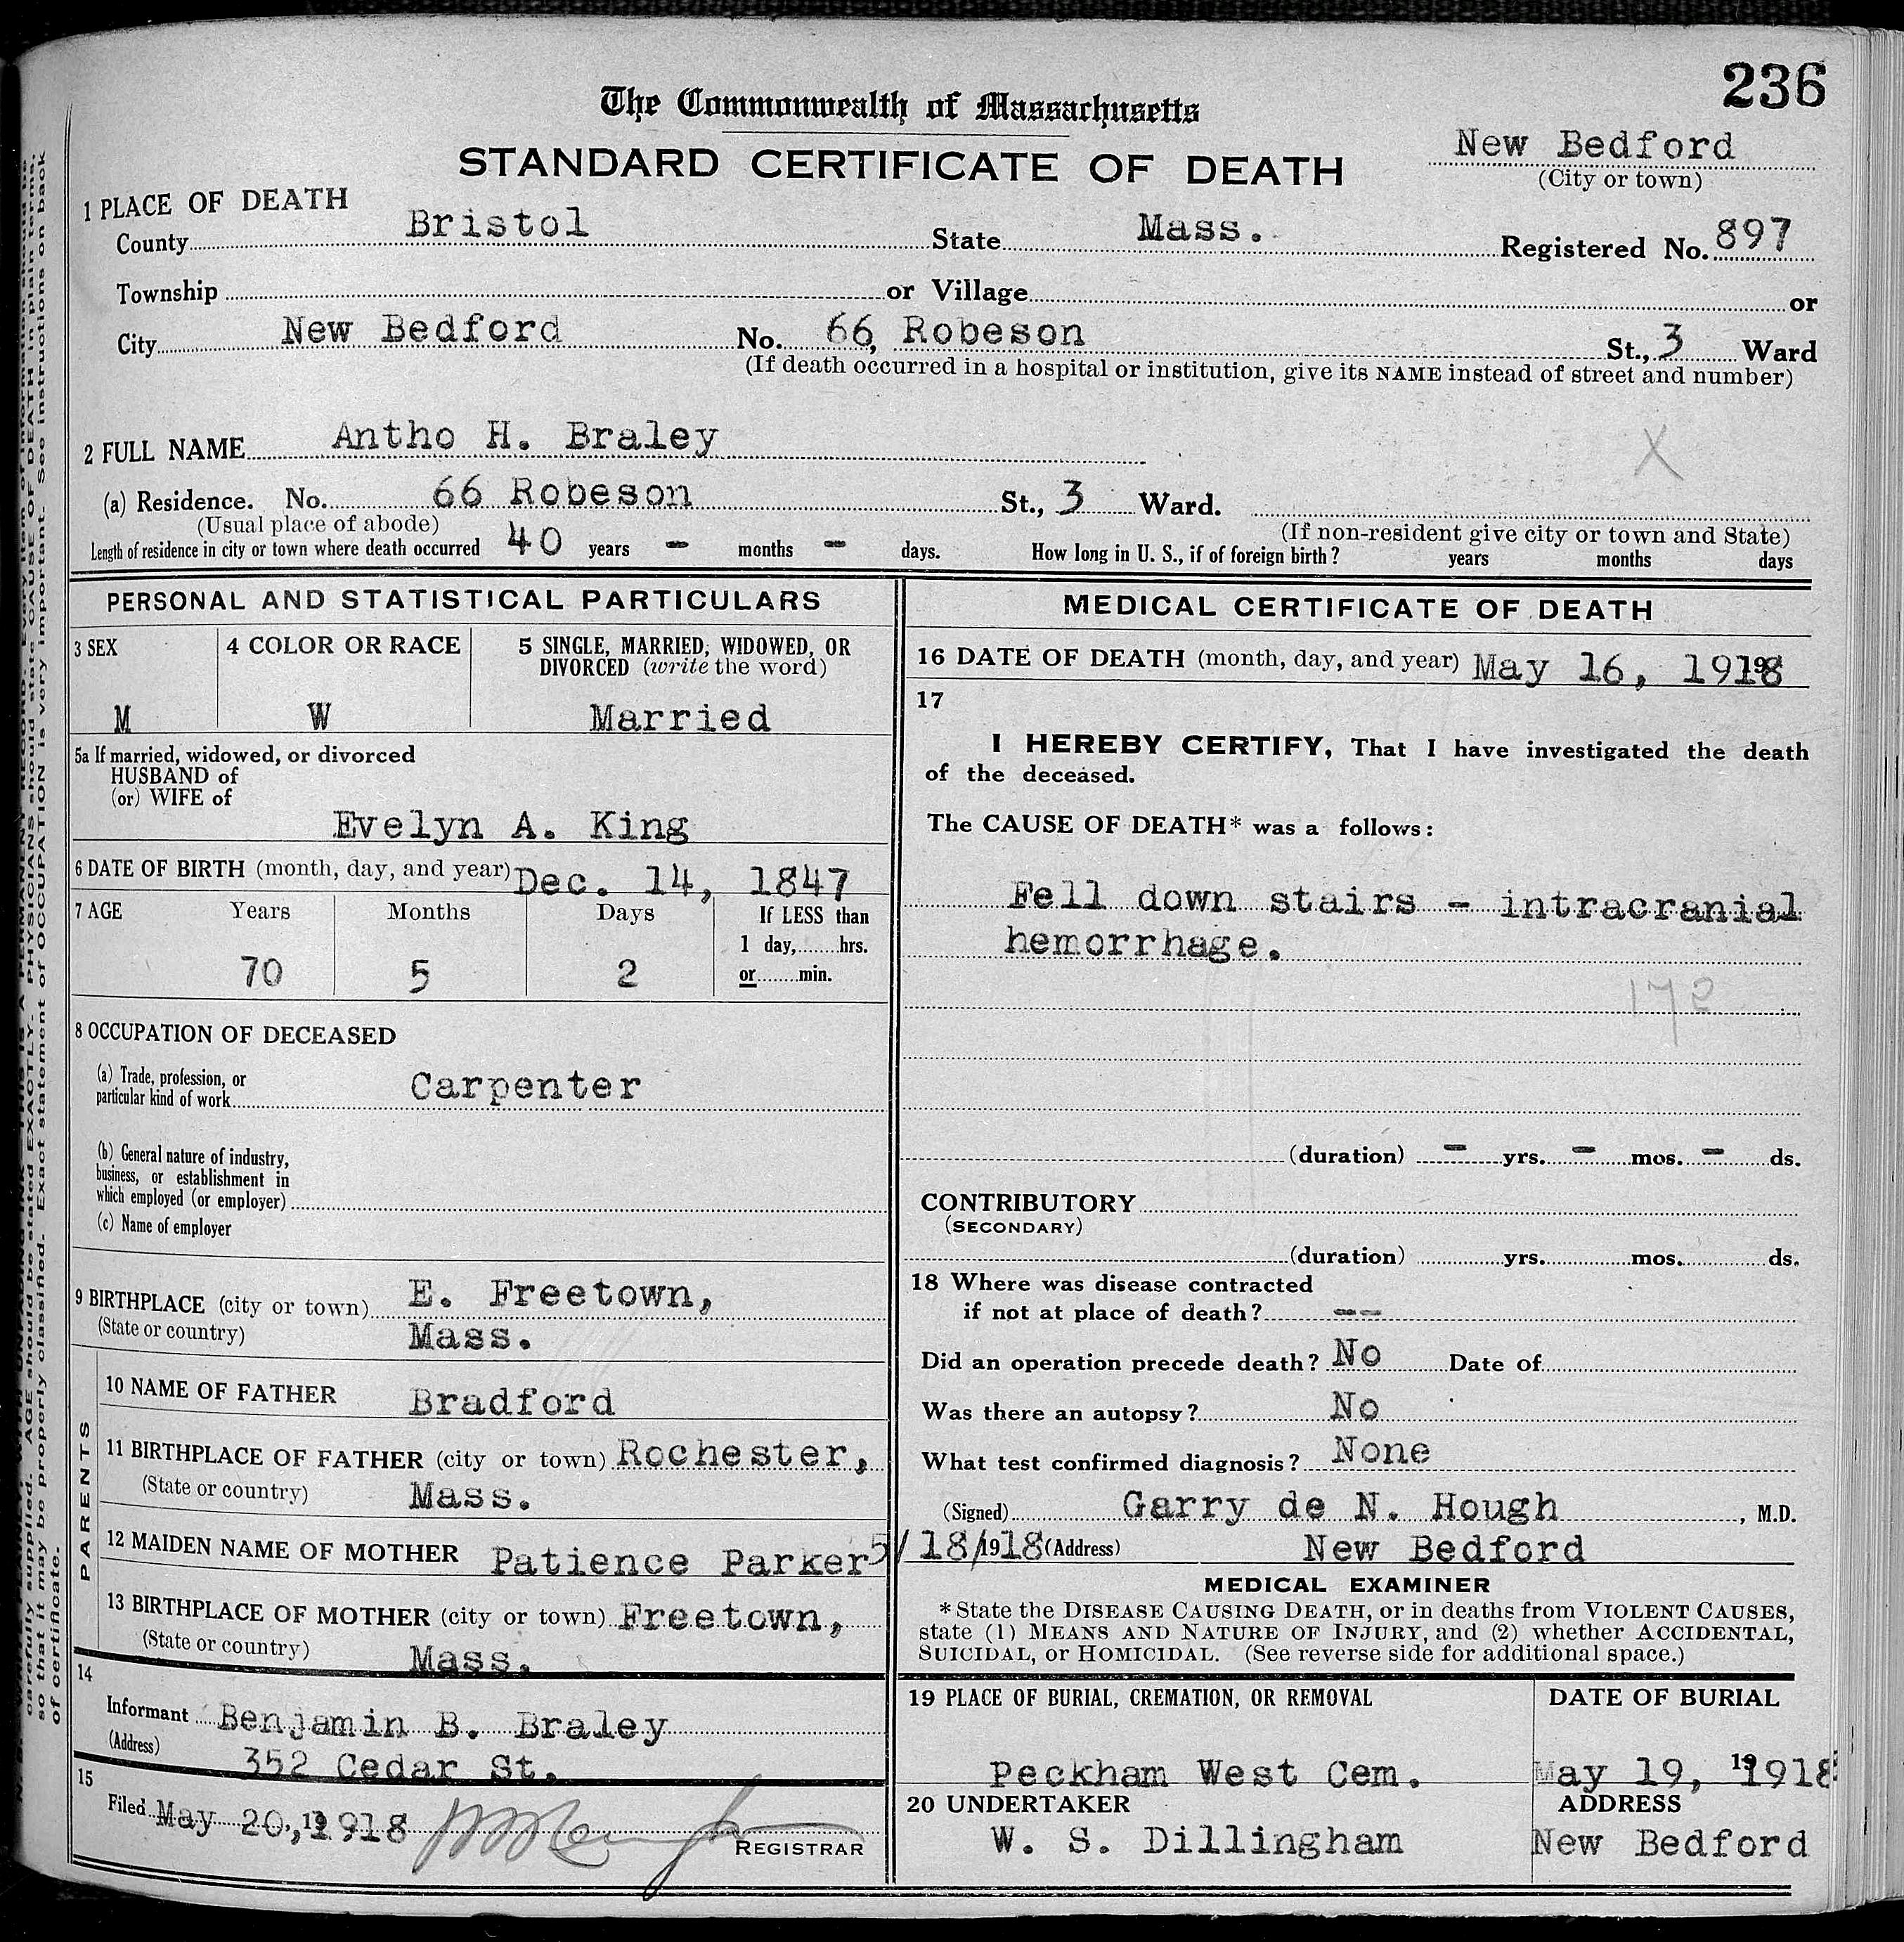 236
The Commonwealth of Massachusetts
STANDARD CERTIFICATE OF DEATH
New Bedford
(City or town)
1 PLACE OF DEATH
County Bristol State Mass. Registered No. 897
Township or Village or
City New Bedford No. 66, Robeson St., 3 Ward
(If death occurred in a hospital or institution, give its NAME instead of street and number)
2 FULL NAME Antho H. Braley
X
(a) Residence. No. 66 Robeson St., 3 Ward.
(Usual place of abode) (If non-resident give city or town and State)
Length of residence in city or town where death occurred 40 years - months - days. How long in U. S., if of foreign birth? years months days
PERSONAL AND STATISTICAL PARTICULARS
3 SEX 4 COLOR OR RACE 5 SINGLE, MARRIED, WIDOWED, OR
DIVORCED (write the word)
M W Married
5a If married, widowed, or divorced
HUSBAND of
(or) WIFE of
Evelyn A. King
6 DATE OF BIRTH (month, day, and year) Dec. 14, 1847
7 AGE Years Months Days If LESS than
1 day,......hrs.
70 5 2 or......min.
8 OCCUPATION OF DECEASED
(a) Trade, profession, or
particular kind of work Carpenter
(b) General nature of industry,
business, or establishment in
which employed (or employer)
(c) Name of employer
9 BIRTHPLACE (city or town) E. Freetown,
(State or country) Mass.
PARENTS
10 NAME OF FATHER Bradford
11 BIRTHPLACE OF FATHER (city or town) Rochester,
(State or country) Mass.
12 MAIDEN NAME OF MOTHER Patience Parker
13 BIRTHPLACE OF MOTHER (city or town) Freetown,
(State or country) Mass.
14
Informant Benjamin B. Braley
(Address) 352 Cedar St.
15
Filed May 20, 19 1918
REGISTRAR
MEDICAL CERTIFICATE OF DEATH
16 DATE OF DEATH (month, day, and year) May 16, 1918
17
I HEREBY CERTIFY, That I have investigated the death
of the deceased.
The CAUSE OF DEATH* was a follows:
Fell down stairs - intracranial
hemorrhage.
172
(duration) - yrs. - mos. - ds.
CONTRIBUTORY
(SECONDARY)
(duration) yrs. mos. ds.
18 Where was disease contracted
if not at place of death? --
Did an operation precede death? No Date of
Was there an autopsy? No
What test confirmed diagnosis? None
(Signed) Garry de N. Hough, M.D.
5/18/1918 (Address) New Bedford
MEDICAL EXAMINER
*State the DISEASE CAUSING DEATH, or in deaths from VIOLENT CAUSES,
state (1) MEANS AND NATURE OF INJURY, and (2) whether ACCIDENTAL,
SUICIDAL, or HOMICIDAL. (See reverse side for additional space.)
19 PLACE OF BURIAL, CREMATION, OR REMOVAL DATE OF BURIAL
Peckham West Cem. May 19, 19 1918
20 UNDERTAKER ADDRESS
W. S. Dillingham New Bedford
carefully supplied. AGE should be stated EXACTLY. PHYSICIANS should state CAUSE OF DEATH in plain terms,
so that it may be properly classified. Exact statement of OCCUPATION is very important. See instructions on back
of certificate.